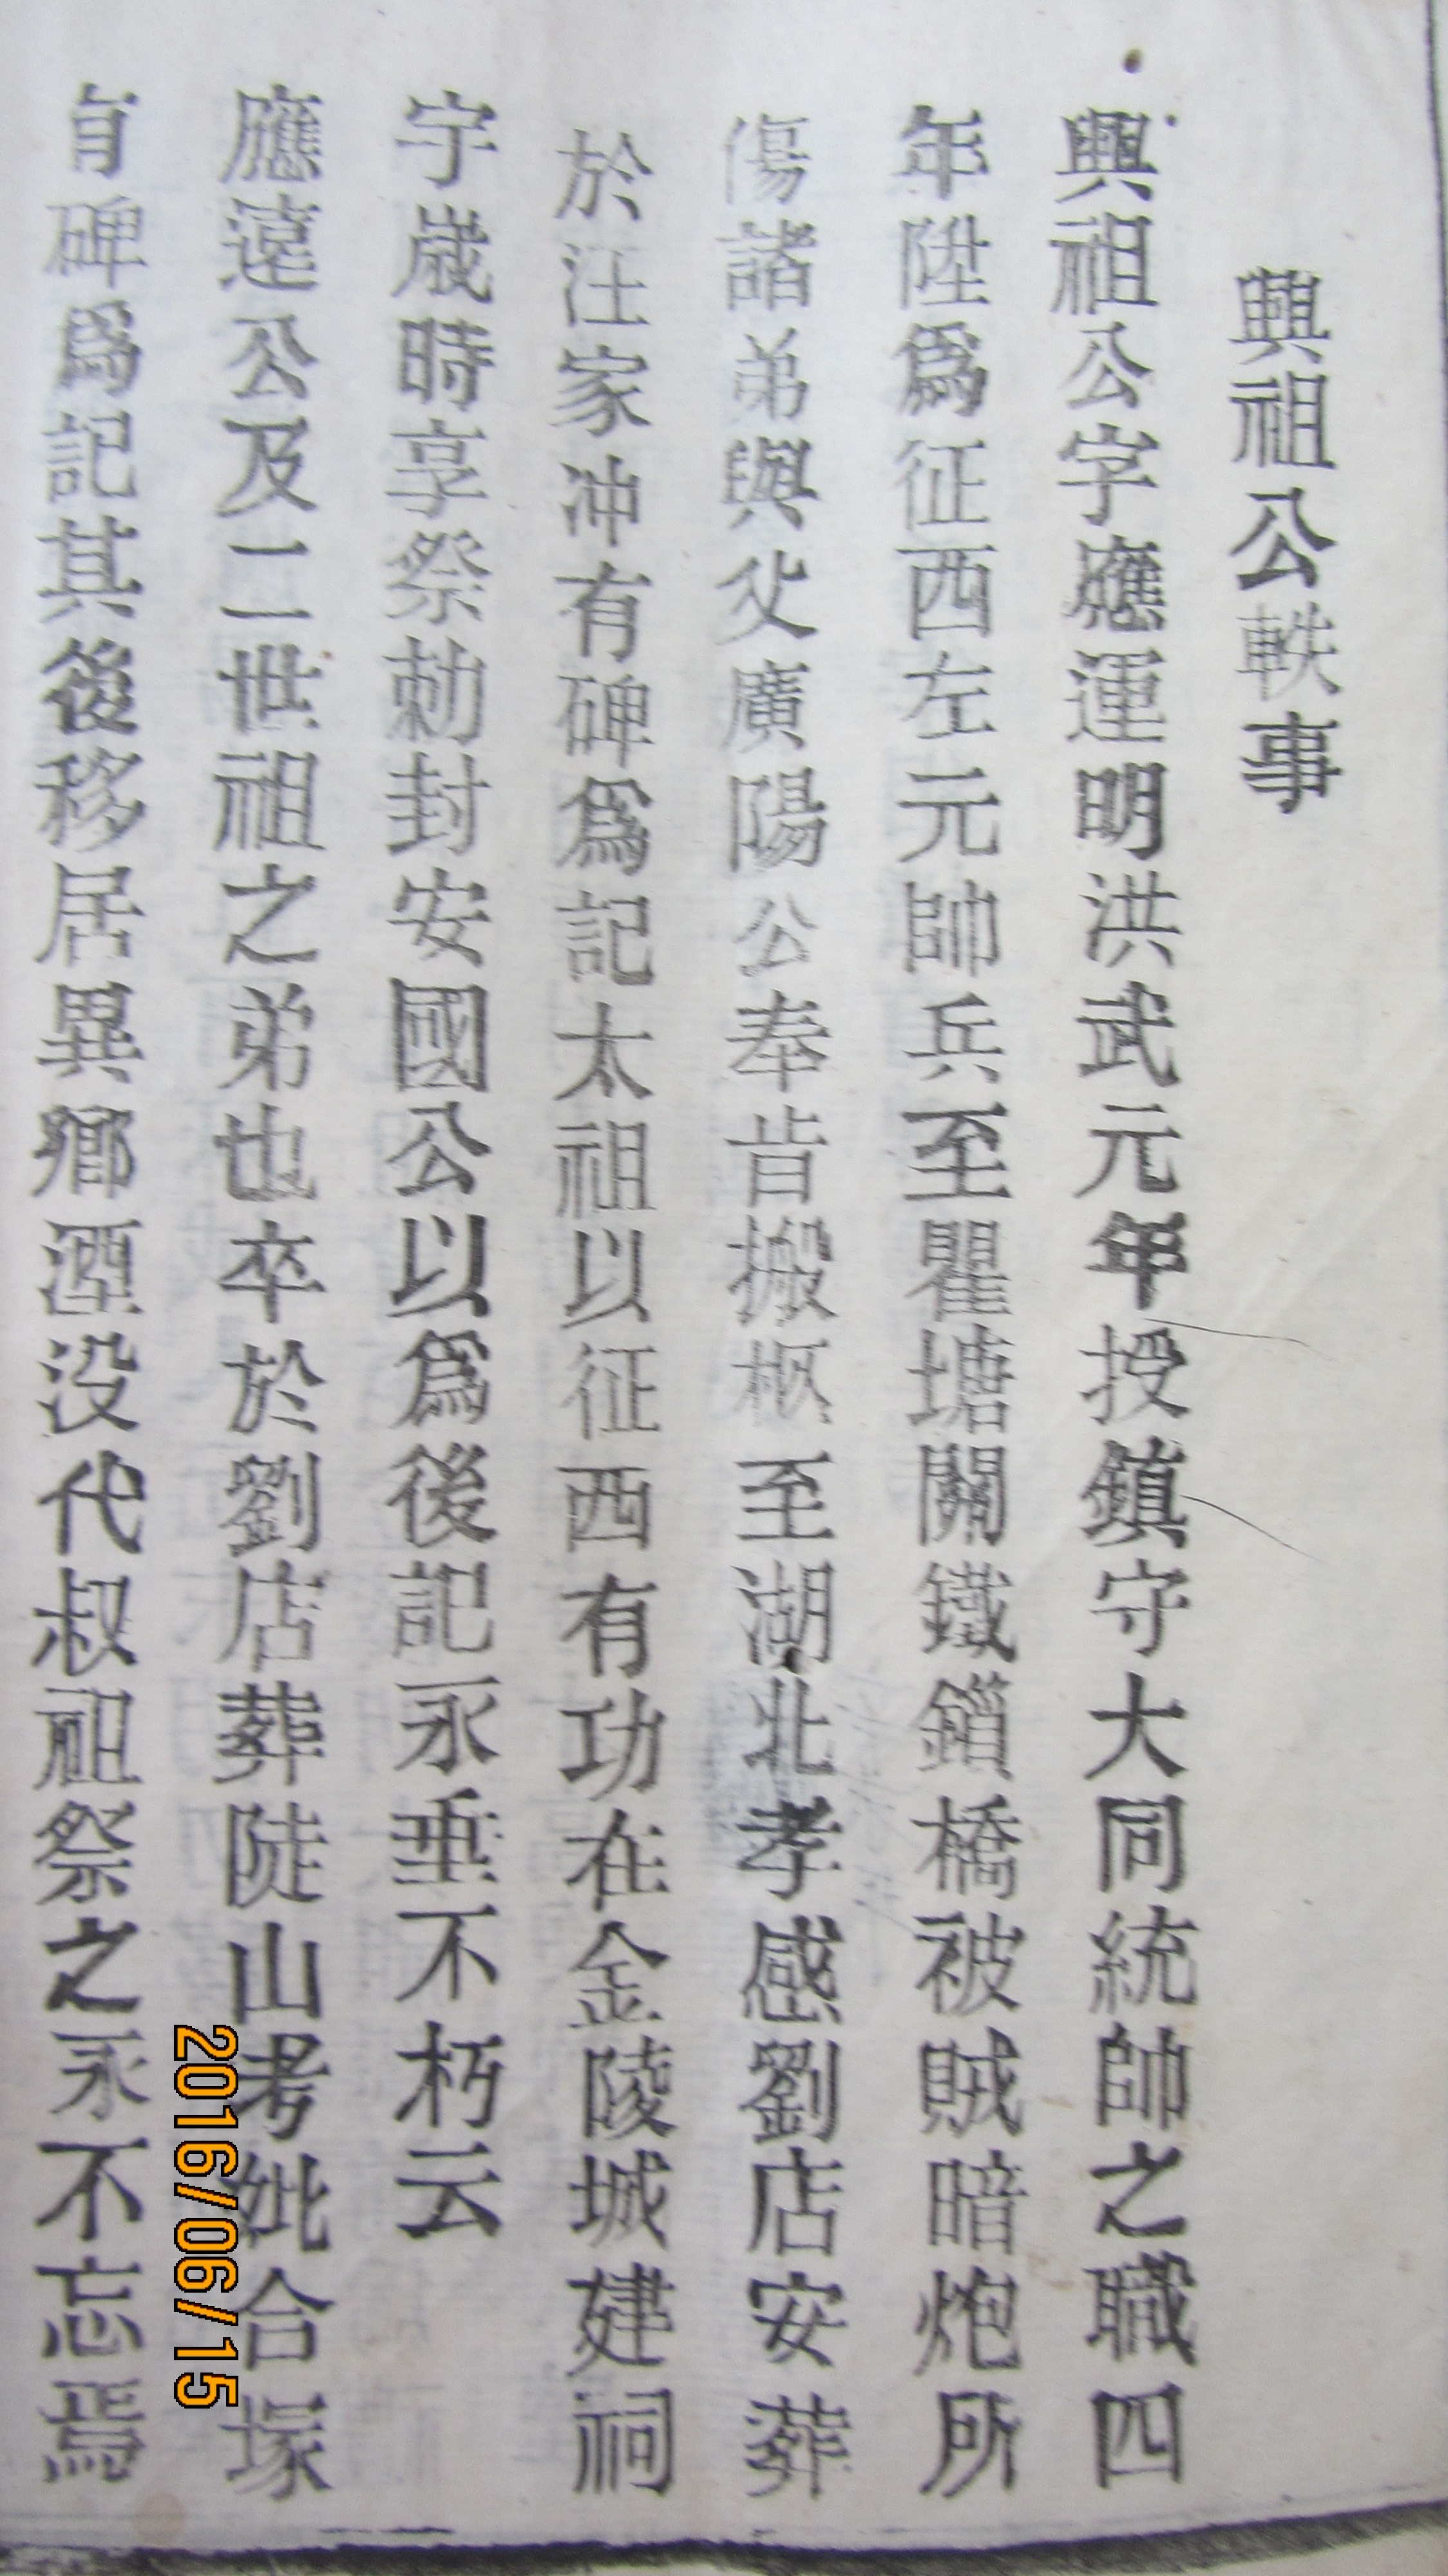 興祖公軼事
興祖公字應運明洪武元年授鎮守大同統帥之職四
年陞爲征西左元帥兵至瞿塘關鐵鎖橋被賊暗炮所
傷諸弟與父廣陽公奉旨搬柩至湖北孝感劉店安葬
於汪家冲有碑爲記太祖以征西有功在金陵城建祠
宇嵗時享祭勅封安國公以爲後記永垂不朽云
應遠公及二世祖之弟也卒於劉店葬陡山考妣合塚
有碑爲記其後移居異鄉湮没代叔祖祭之永不忘焉
2016/06/15